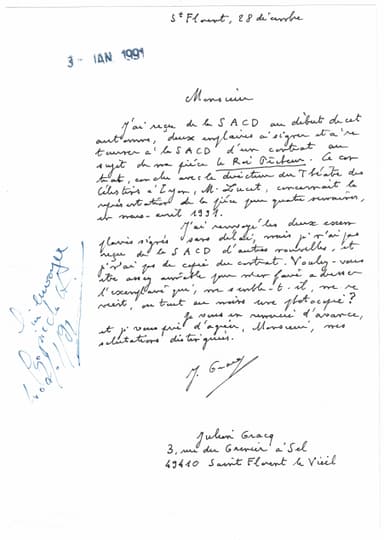 St Florent, 28 décembre
3 - JAN 1991
Monsieur
J'ai reçu de la SACD au début de cet
automne, deux exemplaires à signer et à re
tourner à la SACD d'un contrat au
sujet de ma pièce le Roi Pêcheur. Ce con
trat, conclu avec le directeur du Théâtre des
Célestins à Lyon, M. Lucet, concernait la
représentation de la pièce pour quatre semaines,
en mars-avril 1991.
J'ai renvoyé les deux exem
plaires signés sans délai, mais je n'ai pas
reçu de la SACD d'autres nouvelles, et
je n'ai pas de copie du contrat. Voulez-vous
être assez aimable pour me faire adresser
l'exemplaire qui, me semble-t-il, me re
vient, ou tout au moins une photocopie?
Je vous en remercie d'avance,
et je vous prie d'agréer, Monsieur, mes
salutations distinguées.
J. Gracq
Julien Gracq
3, rue du Grenier à Sel
49410 Saint Florent le Vieil